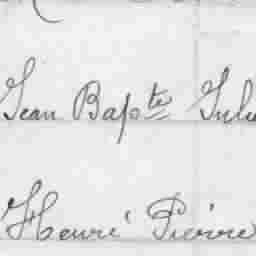 Jean Bapte
Henri Pierre